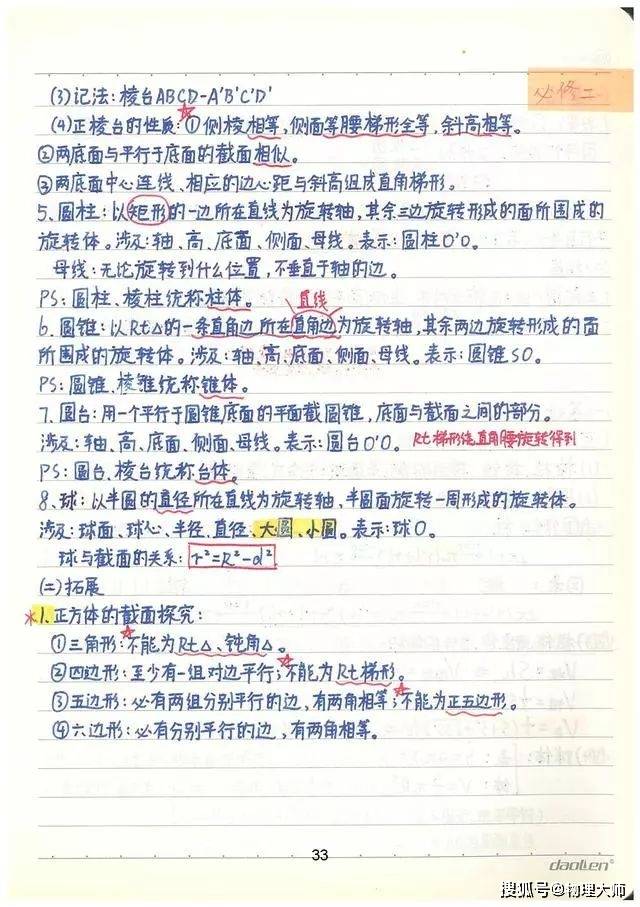 必修二
(3)记法:棱台ABCD-A'B'C'D'
(4)正棱台的性质:①侧棱相等,侧面等腰梯形全等,斜高相等。
②两底面与平行于底面的截面相似。
③两底面中心连线、相应的边心距与斜高组成直角梯形。
5、圆柱:以矩形的一边所在直线为旋转轴,其余三边旋转形成的面所围成的
旋转体。涉及:轴、高、底面、侧面、母线。表示:圆柱O'O。
母线:无论旋转到什么位置,不垂直于轴的边。
PS:圆柱、棱柱统称柱体。
直线
6、圆锥:以Rt△的一条直角边所在直角边为旋转轴,其余两边旋转形成的面
所围成的旋转体。涉及:轴、高、底面、侧面、母线。表示:圆锥SO。
PS:圆锥、棱锥统称锥体。
7、圆台:用一个平行于圆锥底面的平面截圆锥,底面与截面之间的部分。
涉及:轴、高、底面、侧面、母线。表示:圆台O'O。Rt梯形绕直角腰旋转得到
PS:圆台、棱台统称台体。
8、球:以半圆的直径所在直线为旋转轴,半圆面旋转一周形成的旋转体。
涉及:球面、球心、半径、直径、大圆、小圆。表示:球O。
球与截面的关系:r²=R²-d²
(二)拓展
*1.正方体的截面探究:
①三角形:不能为Rt△、钝角△。
②四边形:至少有一组对边平行;不能为Rt梯形。
③五边形:必有两组分别平行的边,有两角相等;不能为正五边形。
④六边形:必有分别平行的边,有两角相等。
33
daolen
搜狐号@物理大师